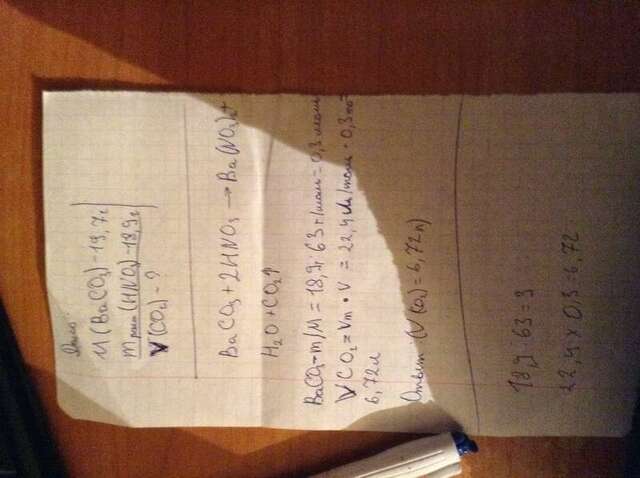 Дано:
M(BaCO₃)-19,7г
m раст(HNO₃)-18,9г
V(CO₂)-?
BaCO₃+2HNO₃→Ba(NO₃)₂+
H₂O+CO₂↑
BaCO₃=m/M=18,9г 63г/моль=0,3моль
VCO₂=Vm•V=22,4л/моль•0,3мо=
6,72л
Ответ (V(co₂)=6,72л)
18,9 63=3
22,4×0,3=6,72